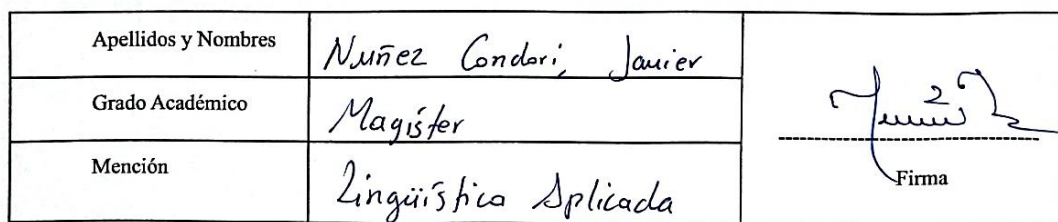 Apellidos y Nombres Nuñez Condori, Javier
Grado Académico Magíster
Mención Lingüística Aplicada
Firma